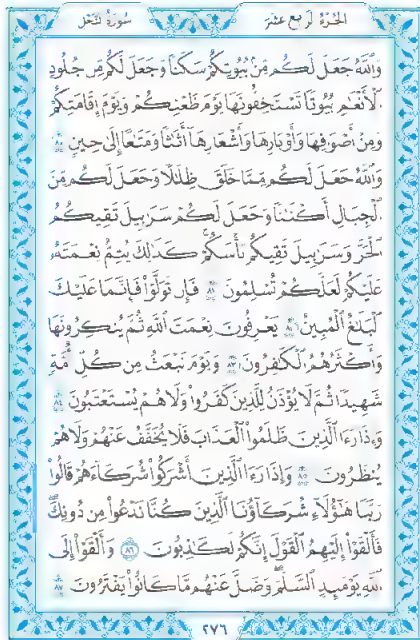 الجزء الرابع عشر
سورة النحل
وَاللَّهُ جَعَلَ لَكُم مِّنۢ بُيُوتِكُمْ سَكَنًا وَجَعَلَ لَكُم مِّن جُلُودِ
ٱلْأَنْعَٰمِ بُيُوتًا تَسْتَخِفُّونَهَا يَوْمَ ظَعْنِكُمْ وَيَوْمَ إِقَامَتِكُمْ
وَمِنْ أَصْوَافِهَا وَأَوْبَارِهَا وَأَشْعَارِهَآ أَثَٰثًا وَمَتَٰعًا إِلَىٰ حِينٍ ٨٠
وَٱللَّهُ جَعَلَ لَكُم مِّمَّا خَلَقَ ظِلَٰلًا وَجَعَلَ لَكُم مِّنَ
ٱلْجِبَالِ أَكْنَٰنًا وَجَعَلَ لَكُمْ سَرَٰبِيلَ تَقِيكُمُ
ٱلْحَرَّ وَسَرَٰبِيلَ تَقِيكُم بَأْسَكُمْ كَذَٰلِكَ يُتِمُّ نِعْمَتَهُۥ
عَلَيْكُمْ لَعَلَّكُمْ تُسْلِمُونَ ٨١ فَإِن تَوَلَّوْا۟ فَإِنَّمَا عَلَيْكَ
ٱلْبَلَٰغُ ٱلْمُبِينُ ٨٢ يَعْرِفُونَ نِعْمَتَ ٱللَّهِ ثُمَّ يُنكِرُونَهَا
وَأَكْثَرُهُمُ ٱلْكَٰفِرُونَ ٨٣ وَيَوْمَ نَبْعَثُ مِن كُلِّ أُمَّةٍ
شَهِيدًا ثُمَّ لَا يُؤْذَنُ لِلَّذِينَ كَفَرُوا۟ وَلَا هُمْ يُسْتَعْتَبُونَ ٨٤
وَإِذَا رَءَا ٱلَّذِينَ ظَلَمُوا۟ ٱلْعَذَابَ فَلَا يُخَفَّفُ عَنْهُمْ وَلَا هُمْ
يُنظَرُونَ ٨٥ وَإِذَا رَءَا ٱلَّذِينَ أَشْرَكُوا۟ شُرَكَآءَهُمْ قَالُوا۟
رَبَّنَا هَٰٓؤُلَآءِ شُرَكَآؤُنَا ٱلَّذِينَ كُنَّا نَدْعُوا۟ مِن دُونِكَ
فَأَلْقَوْا۟ إِلَيْهِمُ ٱلْقَوْلَ إِنَّكُمْ لَكَٰذِبُونَ ٨٦ وَأَلْقَوْا۟ إِلَى
ٱللَّهِ يَوْمَئِذٍ ٱلسَّلَمَ وَضَلَّ عَنْهُم مَّا كَانُوا۟ يَفْتَرُونَ ٨٧
٢٧٦